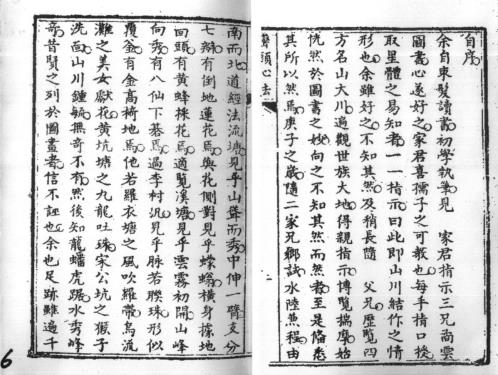 自序
余自束髮讀書初學執筆見　家君指示三兄喬雲
圖書心遂好之家君喜孺子之可教也每手指口授
取星體之易知者一一指示曰此即山川結作之情
形也余雖好之不知其然及稍長隨　父兄歷覽四
方名山大川遍觀世族大地得親指示博覽揣摩始
恍然於圖書之妙向之不知其然而然者至是悟悉
其所以然焉庚子之歲隨二家兄鄉試水陸兼程由
南而北道經法流塘見乎山聳而秀中伸一臂支分
七瓣有倒地蓮花焉與花側對見乎螺螄橫身據地
回頭有黃蜂採花焉適覽溪塘見乎雲霧初開山峰
向秀有八仙下棊焉過李村汎見乎脉若朘珠形似
覆釜有金高椅地焉他若羅衣塘之風吹羅帶烏流
灘之美女獻花黃坑塘之九龍吐珠宋公坑之猴子
洗面山川鍾毓無奇不有然後知龍蟠虎踞水秀峰
奇昔賢之列於圖畫者信不誣也余也足跡雖遍千
6